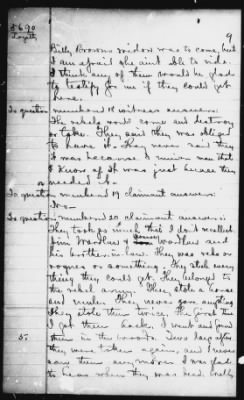 9
8690
Loyalty
Billy Browns widow was to come, but
I am afraid she aint able to ride.
I think any of them would be glad
to testify for me if they could get
here.
To question numbered 18 witness answers:
The rebels would come and destroy
or take. They said they was obliged
to have it. They never said they
it was because a union man that
I know of. It was just because they
needed it.
To question numbered 19 claimant answers:
No—
To question numbered 20 claimant answers:
They took so much that I don't recollect.
Jim Wardlaw & Wardlaw and
his brother-in-law. They was rebs or
rogues or something. They stole every
thing they could get. They belonged to
the rebel army. They stole a horse
and mules. They never gave anything.
They stole them twice, the first time
I got them back. I went and found
them in the woods. Few days after
they were taken again, and I never
saw them any more. I was glad
to hear when they was dead.
5.